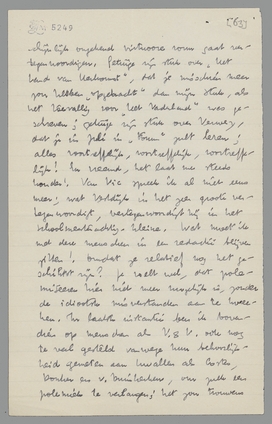 5249
[63]
schijnlijk ongekend virtuoze vorm gaat ver-
tegenwoordigen. Getuige zijn stuk over "Het
Land van Herkomst", dat je misschien meer
zou hebben "opgebracht" dan mijn stuk, als
het toevallig voor het Vaderland was ge-
schreven; getuige zijn stuk over Vermey,
dat je in Juli in "Forum" zult lezen;
alles voortreffelijk, voortreffelijk, voortreffe-
lijk! En vreemd, het laat me steeds
kouder! Van Vic spreek ik al niet eens
meer; wat Vestdijk in het zeer groote ver-
tegenwoordigt, vertegenwoordigt hij in het
schoolmeesterachtig-kleine. Wat moet ik
met deze menschen in een redactie blijven
zitten? Omdat ze relatief nog het ge-
schiktst zijn? Je voelt wel, dat pole-
miseeren hier niet meer mogelijk is, zonder
de idiootste misverstanden aan te kwee-
ken. In laatste instantie ben ik boven-
dien op menschen als V. & V. ook nog
te veel gesteld vanwege hun behoorlijk-
heid gemeten aan kwallen als Coster,
Donker en v. Duinkerken, om zelfs een
polemiek te verlangen; het zou trouwens